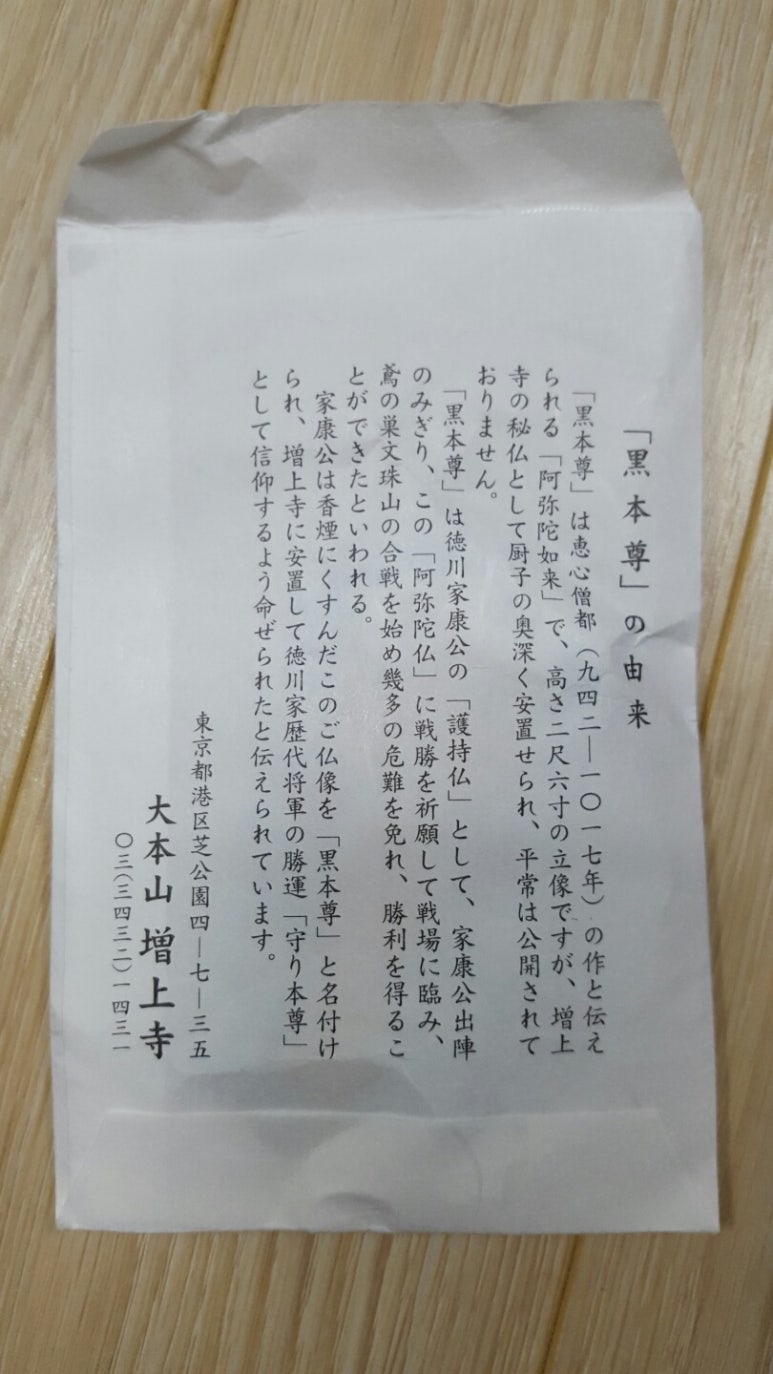 「黒本尊」の由来
「黒本尊」は恵心僧都（九四二―一〇一七年）の作と伝え
られる「阿弥陀如来」で、高さ二尺六寸の立像ですが、増上
寺の秘仏として厨子の奥深く安置せられ、平常は公開されて
おりません。
「黒本尊」は徳川家康公の「護持仏」として、家康公出陣
のみぎり、この「阿弥陀仏」に戦勝を祈願して戦場に臨み、
鳶の巣文珠山の合戦を始め幾多の危難を免れ、勝利を得るこ
とができたといわれる。
家康公は香煙にくすんだこのご仏像を「黒本尊」と名付け
られ、増上寺に安置して徳川家歴代将軍の勝運「守り本尊」
として信仰するよう命ぜられたと伝えられています。
東京都港区芝公園四―七―三五
大本山増上寺
〇三（三四三二）一四三一